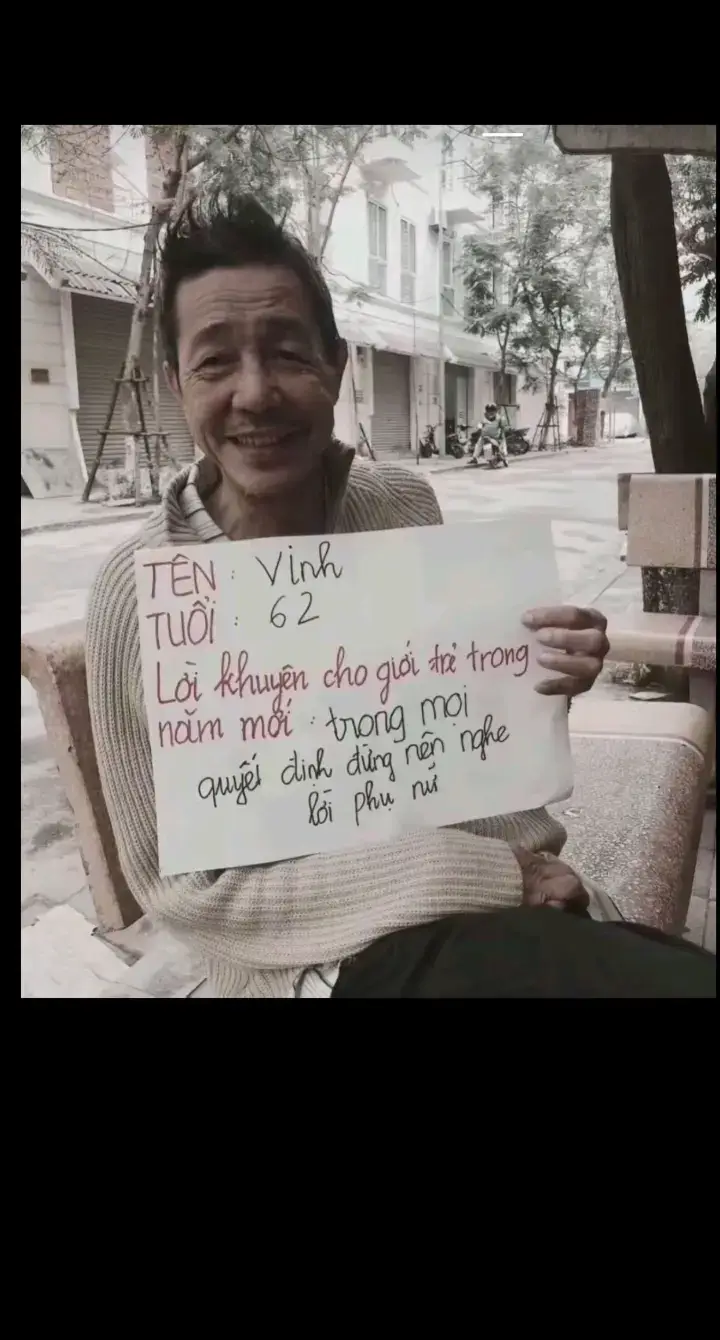 TÊN : Vinh
TUỔI : 62
Lời khuyên cho giới trẻ trong
năm mới : trong mọi
quyết định đừng nên nghe
lời phụ nữ